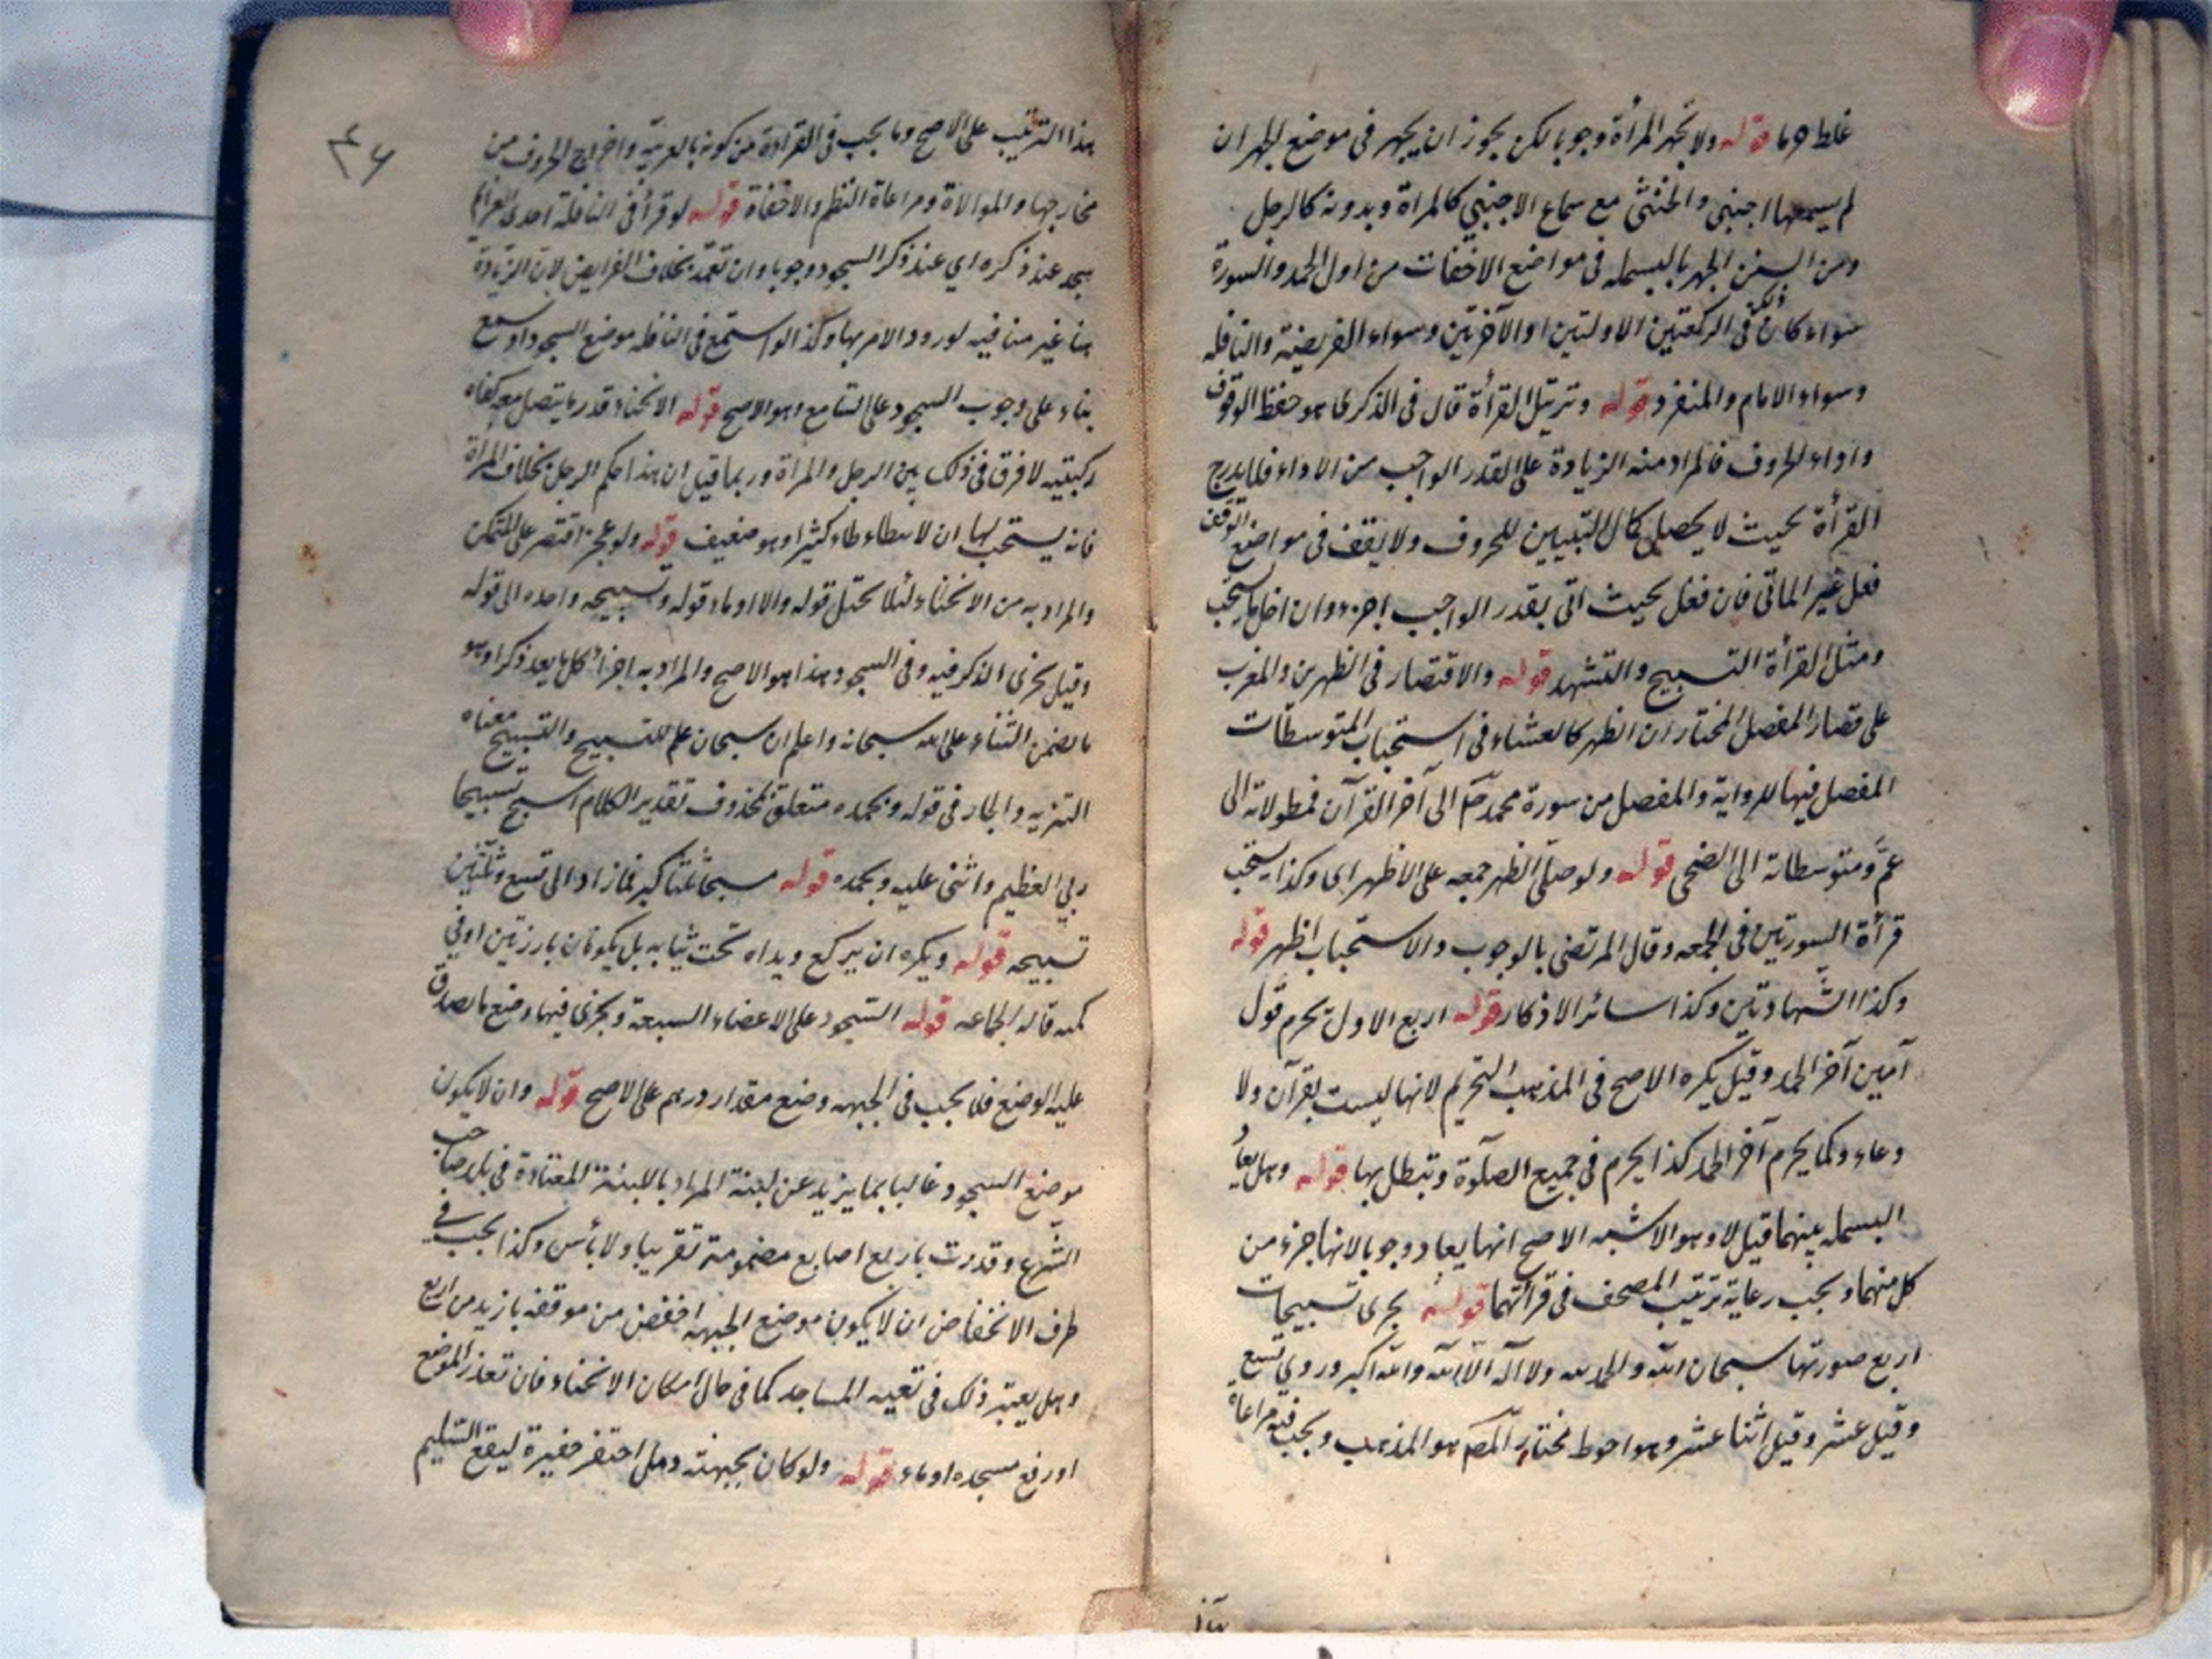 غلط هما قوله ولا تجهر المرأة وجوبا لكن يجوز ان يجهر فى موضع الجهر ان
لم يسمعها اجنبى والخنثى مع سماع الاجنبي كالمراة وبدونه كالرجل
ومن السنن الجهر بالبسمله فى مواضع الاخفات من اول الحمد والسورة
سواء كان ذلك فى الركعتين الاولتين او الآخرتين وسواء الفريضة والنافله
وسواء الامام والمنفرد قوله وترتيل القرأة قال فى الذكرى هو حفظ الوقوف
واداء الحروف فالمراد منه الزيادة على القدر الواجب من الاداء فلا يدرج
القرأة بحيث لا يحصل كمال التبيين للحروف ولا يقف فى مواضع الوقف
فعل غير الماتى فان فعل بحيث اتى بقدر الواجب اجزء وان اخل بالمستحب
ومثل القرأة التسبيح والتشهد قوله والاقتصار فى الظهرين والمغرب
على قصار المفصل المختار ان الظهر كالعشاء فى استحباب المتوسطات
المفصل فيها للرواية والمفصل من سورة محمد ص الى آخر القرآن فمطولاته الى
عمّ ومتوسطاته الى الضحى قوله ولو صلى الظهر جمعه على الاظهر اى وكذا يستحب
قرأة السورتين فى الجمعه وقال المرتضى بالوجوب والاستحباب اظهر قوله
وكذا الشهادتين وكذا سائر الاذكار قوله اربع الاول يحرم قول
آمين آخر الحمد وقيل يكره الاصح فى المذهب التحريم لانها ليست بقرآن ولا
دعاء وكما يحرم آخر الحمد كذا يحرم فى جميع الصلوة وتبطل بها قوله وهل يعاد
البسمله بينهما قيل لا وهو الاشبه الاصح انها يعاد وجوبا لانها جزء من
كل منهما ويجب رعاية ترتيب المصحف فى قرأتهما قوله يجزى تسبيحات
اربع صورتها سبحان الله والحمد لله ولا اله الا الله والله اكبر وروي تسع
وقيل عشر وقيل اثنا عشر وهو احوط مختار المص هو المذهب ويجب فيه مراعاة
هذا
بهذا الترتيب على الاصح وما يجب فى القراءة من كونه بالعربية واخراج الحروف من
مخارجها والموالاة ومراعاة النظم والاخفاة قوله لو قرأ فى النافلة احدى العزائم
سجد عند ذكره اي عند ذكر السجود وجوبا وان تعمد بخلاف الفرايض لان الزيادة
هنا غير منافيه لورود الامر بها وكذا لو استمع فى النافله موضع السجود او سمع
بناء على وجوب السجود على السامع وهو الاصح قوله الانحناء قدر ما يتصل معه كفاه
ركبتيه لا فرق فى ذلك بين الرجل والمرأة وربما قيل ان هذا حكم الرجل بخلاف المراة
فانه يستحب لها ان لا تطاطاء كثيرا وهو ضعيف قوله ولو عجز اقتصر على المتمكن
والمراد به من الانحناء لئلا تختل قوله والا اوماء قوله وتسبيحه واحده الى قوله
وقيل يجزى الذكر فيه وفى السجود هذا هو الاصح والمراد به اجزأ كل ما يعد ذكرا وهو
ما تضمن الثناء على الله سبحانه واعلم ان سبحان علم للتسبيح والتسبيح معناه
التنزيه والجار فى قوله وبحمده متعلق بمحذوف تقدير الكلام اسبح تسبيحا
ربي العظيم واثنى عليه وبحمده قوله فما زاد الى تسع وثلثين
تسبيحه قوله ويكره ان يركع ويداه تحت ثيابه بل يكونان بارزتين او في
كمه قاله الجماعه قوله السجود على الاعضاء السبعة ويجزى فيها وضع ما يصدق
عليه الوضع فلا يجب فى الجبهه وضع مقدار درهم على الاصح قوله وان لا يكون
موضع السجود غالبا بما يزيد عن لبنة المراد باللبنة المعتادة فى بلد صاحب
الشرع وقدرت باربع اصابع مضمومة تقريبا ولا بأس وكذا يجب فى
طرف الانخفاض ان لا يكون موضع الجبهه اخفض من موقفه بازيد من اربع
وهل يعتبر ذلك فى تعيه المساجد كما فى حال امكان الانحناء فان تعذر الموضع
او رفع مسجده اوماء قوله ولو كان بجبهته دمل احتفر حفيرة ليقع السليم